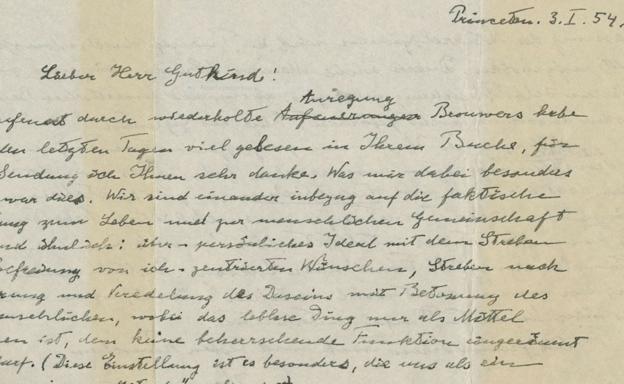 Princeton. 3. I. 54.
Lieber Herr Gutkind!
Anregung
durch wiederholte Aufmunterungen Brouwers habe
den letzten Tagen viel gelesen in Ihrem Buche, für
Sendung ich Ihnen sehr danke. Was mir dabei besonders
war dies. Wir sind einander inbezug auf die faktische
zum Leben und zur menschlichen Gemeinschaft
ähnlich: über-persönliches Ideal mit dem Streben
Befreiung von ich-zentrierten Wünschen, Streben nach
und Veredelung des Daseins mit Betonung des
menschlichen, wobei das leblose Ding nur als Mittel
ist, dem keine beherrschende Funktion eingeräumt
darf. (Diese Einstellung ist es besonders, die uns als ein